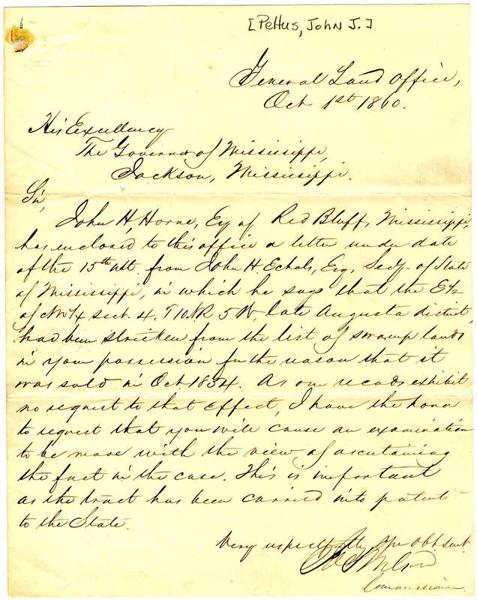 [Pettus, John J.]
General Land Office,
Oct 1st 1860.
His Excellency
The Governor of Mississippi,
Jackson, Mississippi.
Sir,
John H, Horne, Esq of Red Bluff, Mississippi,
has enclosed to this office a letter under date
of the 15th ult. from John H Echols, Esq, Secy. of State
of Mississippi, in which he says that the E½
of NW¼ sect. 4. T10. R 5 W late Augusta district,
had been stricken from the list of swamp lands
in your possession for the reason that it
was sold in Oct 1834. As our records exhibit
no request to that effect, I have the honor
to request that you will cause an examination
to be made with the view of ascertaining
the fact in the case. This is important
as the tract has been carried into patent
to the State.
Very respectfully Your Obt Servt
Wilson
Commissioner